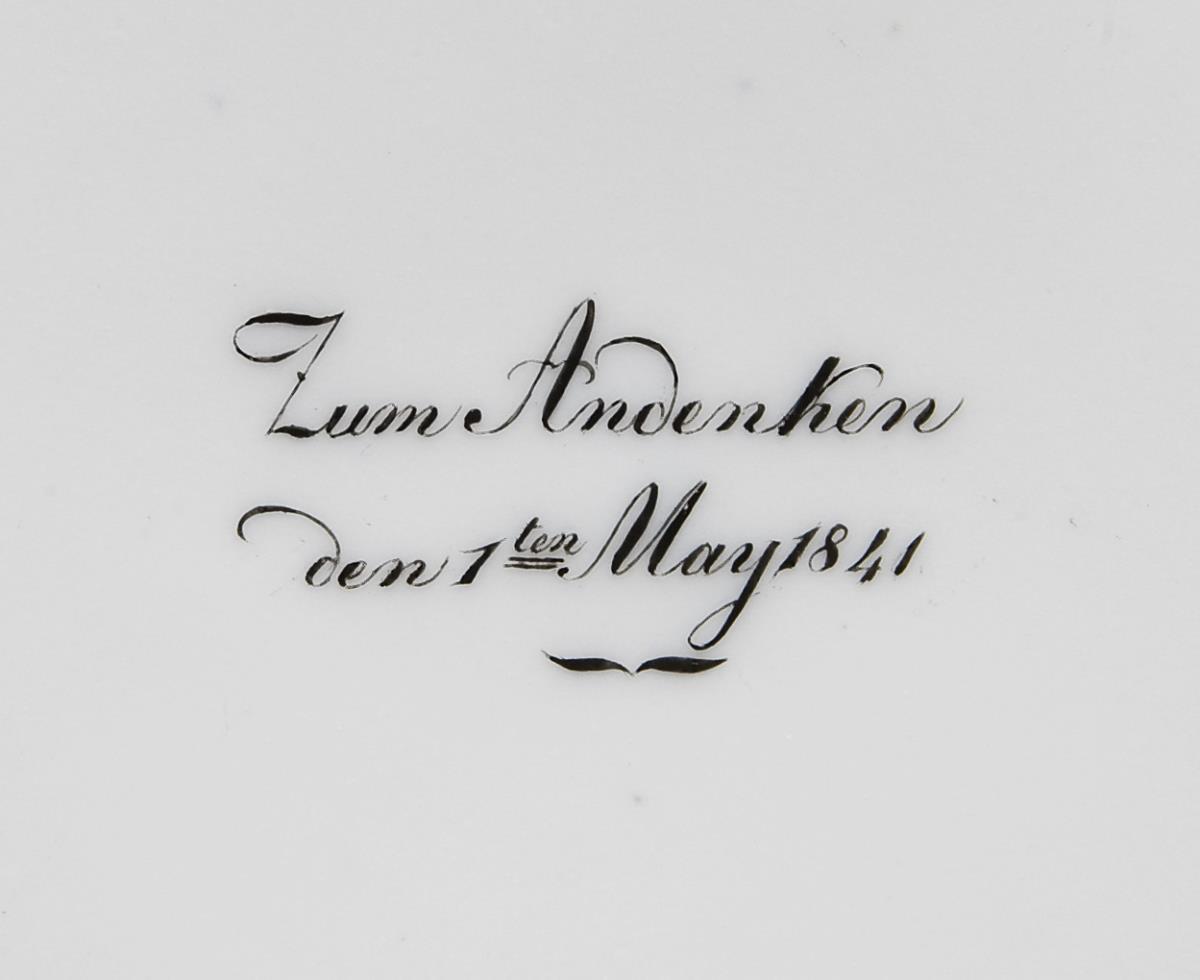 Zum Andenken
den 1ten May 1841